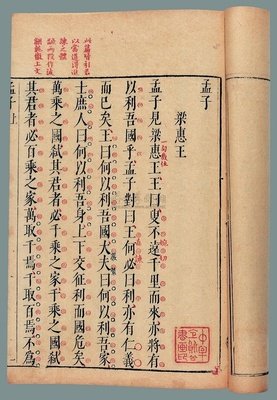 孟子
梁惠王
孟子見梁惠王王曰叟不遠千里而來亦將有
以利吾國乎孟子對曰王何必曰利亦有仁義
而已矣王曰何以利吾國大夫曰何以利吾家
士庶人曰何以利吾身上下交征利而國危矣
萬乘之國弒其君者必千乘之家千乘之國弒
其君者必百乘之家萬取千焉千取百焉不為
孟子上
以當道得進
諫之體